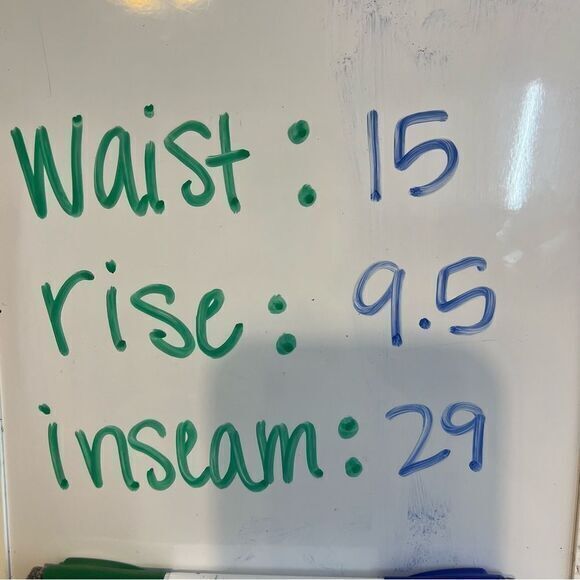 waist: 15
rise: 9.5
inseam: 29